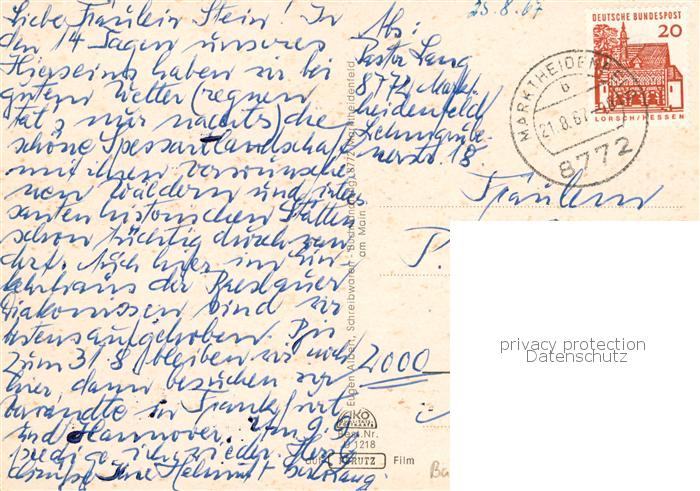 25.8.67
Liebe Fräulein Stein! In
den 14 Tagen unseres
Hierseins haben wir bei
gutem Wetter (regnen
tat's nur nachts) die
schöne Spessartlandschaft
mit ihren verwunsche-
nen Wäldern und interes
santen historischen Stätten
schon tüchtig durchwan
dert. Auch hier im Ein-
kehrhaus der
Diakonissen sind wir
bestens aufgehoben. Bis
zum 31.8. bleiben wir noch
hier, dann besuchen wir
Verwandte in Frankfurt
und Hannover. Am 9.9.
predige ich wieder. Herzl.
Ihre Helmut Lang.
Abs:
Pastor Lang
8772 Markt
heidenfeld
Lehmgrube-
nerstr. 18
DEUTSCHE BUNDESPOST
20
LORSCH/HESSEN
MARKTHEIDENFELD
b
21.8.67
8772
Fräulein
P.
2000
Eugen Albert, Schreibwaren - Buchhandlung, 8772 Marktheidenfeld
am Main
Best.Nr.
D 1218
auf PERUTZ Film
privacy protection
Datenschutz